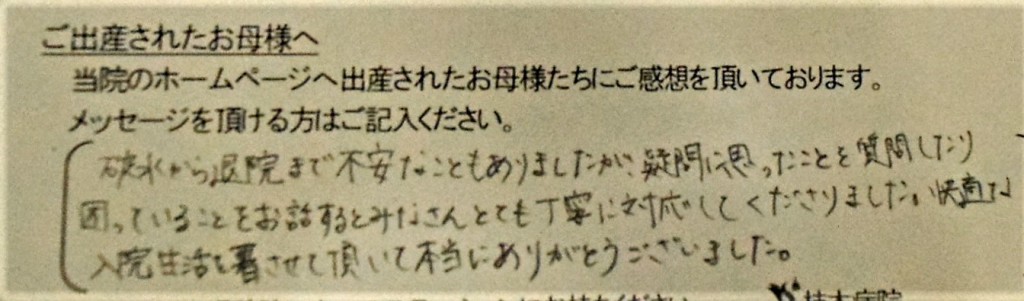 ご出産されたお母様へ
当院のホームページへ出産されたお母様たちにご感想を頂いております。
メッセージを頂ける方はご記入ください。
破水から退院まで不安なこともありましたが、疑問に思ったことを質問したり
困っていることをお話するとみなさんとても丁寧に対応してくださりました。快適な
入院生活を暮させて頂いて本当にありがとうございました。
病院